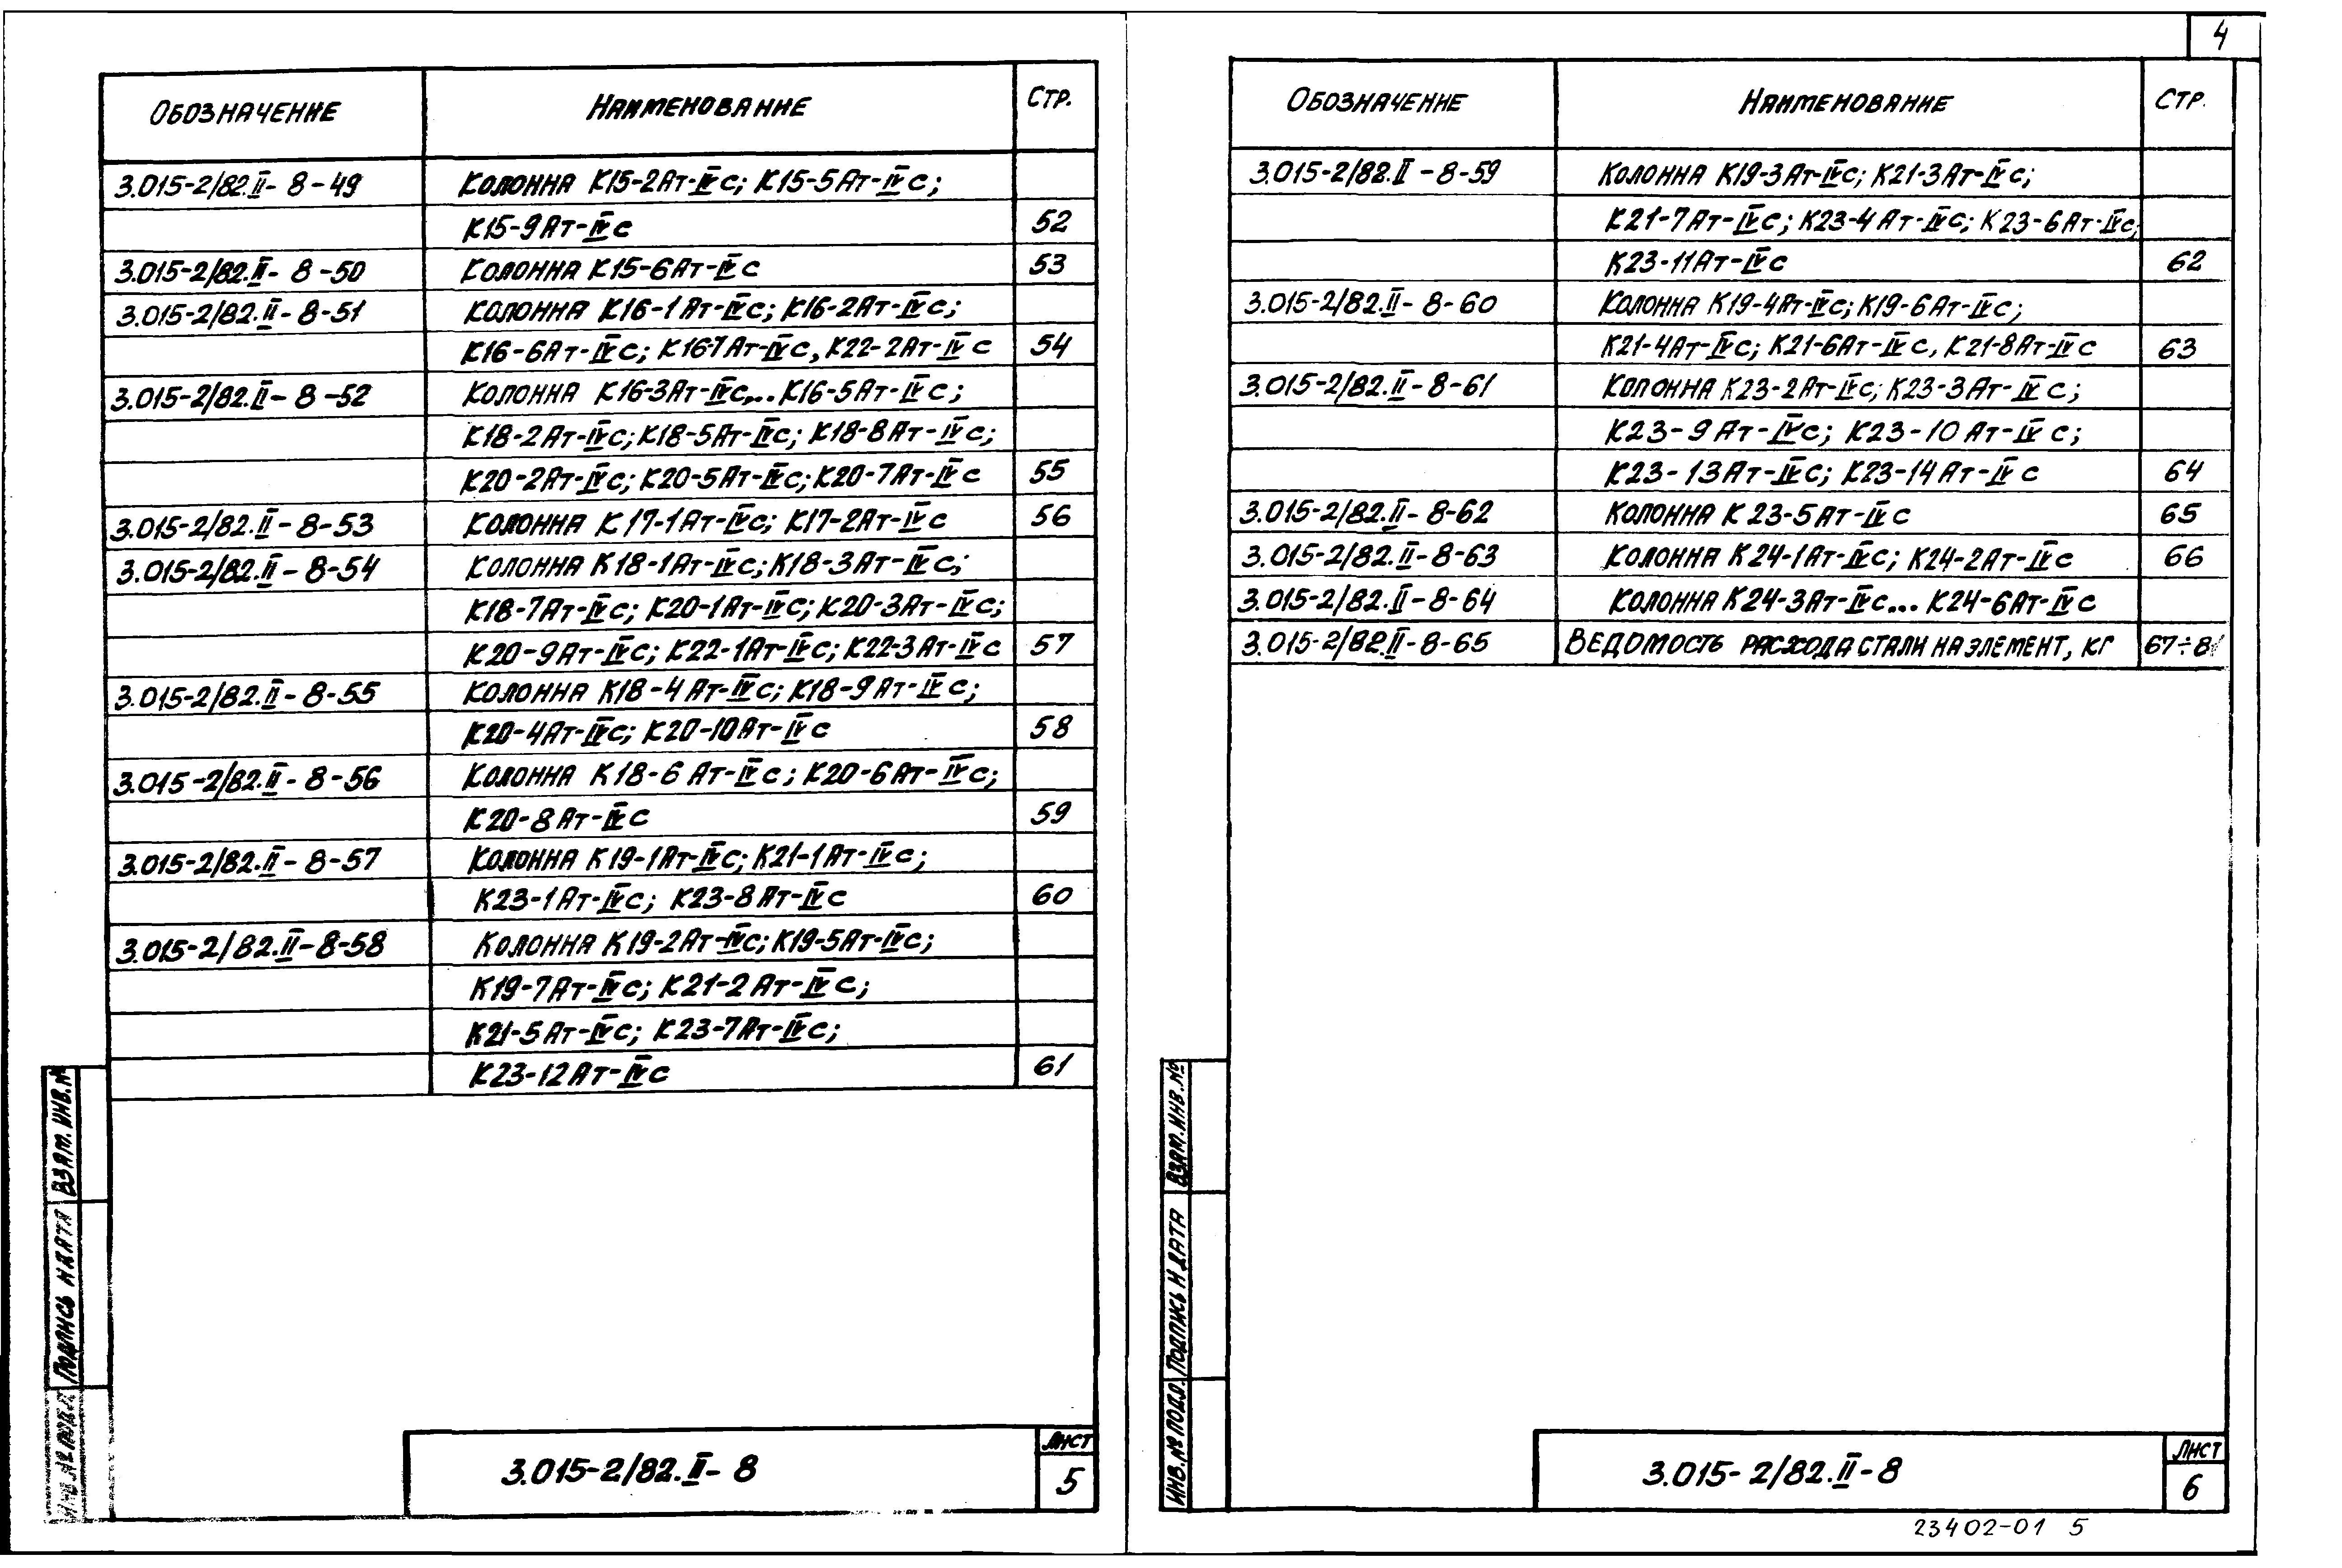 4
Обозначение Наименование Стр.
3.015-2/82.II-8-49 Колонна К15-2Ат-IVс; К15-5Ат-IVс;
К15-9Ат-IVс 52
3.015-2/82.II-8-50 Колонна К15-6Ат-IVс 53
3.015-2/82.II-8-51 Колонна К16-1Ат-IVс; К16-2Ат-IVс;
К16-6Ат-IVс; К16-7Ат-IVс, К22-2Ат-IVс 54
3.015-2/82.II-8-52 Колонна К16-3Ат-IVс... К16-5Ат-IVс;
К18-2Ат-IVс; К18-5Ат-IVс; К18-8Ат-IVс;
К20-2Ат-IVс; К20-5Ат-IVс; К20-7Ат-IVс 55
3.015-2/82.II-8-53 Колонна К17-1Ат-IVс; К17-2Ат-IVс 56
3.015-2/82.II-8-54 Колонна К18-1Ат-IVс; К18-3Ат-IVс;
К18-7Ат-IVс; К20-1Ат-IVс; К20-3Ат-IVс;
К20-9Ат-IVс; К22-1Ат-IVс; К22-3Ат-IVс 57
3.015-2/82.II-8-55 Колонна К18-4Ат-IVс; К18-9Ат-IVс;
К20-4Ат-IVс; К20-10Ат-IVс 58
3.015-2/82.II-8-56 Колонна К18-6Ат-IVс; К20-6Ат-IVс;
К20-8Ат-IVс 59
3.015-2/82.II-8-57 Колонна К19-1Ат-IVс; К21-1Ат-IVс;
К23-1Ат-IVс; К23-8Ат-IVс 60
3.015-2/82.II-8-58 Колонна К19-2Ат-IVс; К19-5Ат-IVс;
К19-7Ат-IVс; К21-2Ат-IVс;
К21-5Ат-IVс; К23-7Ат-IVс;
К23-12Ат-IVс 61
Инв. № подл. Подпись и дата Взам. инв. №
3.015-2/82.II-8
Лист
5
Обозначение Наименование Стр.
3.015-2/82.II-8-59 Колонна К19-3Ат-IVс; К21-3Ат-IVс;
К21-7Ат-IVс; К23-4Ат-IVс; К23-6Ат-IVс;
К23-11Ат-IVс 62
3.015-2/82.II-8-60 Колонна К19-4Ат-IVс; К19-6Ат-IVс;
К21-4Ат-IVс; К21-6Ат-IVс, К21-8Ат-IVс 63
3.015-2/82.II-8-61 Колонна К23-2Ат-IVс; К23-3Ат-IVс;
К23-9Ат-IVс; К23-10Ат-IVс;
К23-13Ат-IVс; К23-14Ат-IVс 64
3.015-2/82.II-8-62 Колонна К23-5Ат-IVс 65
3.015-2/82.II-8-63 Колонна К24-1Ат-IVс; К24-2Ат-IVс 66
3.015-2/82.II-8-64 Колонна К24-3Ат-IVс... К24-6Ат-IVс
3.015-2/82.II-8-65 Ведомость расхода стали на элемент, кг 67÷81
Инв. № подл. Подпись и дата Взам. инв. №
3.015-2/82.II-8
Лист
6
23402-01 5